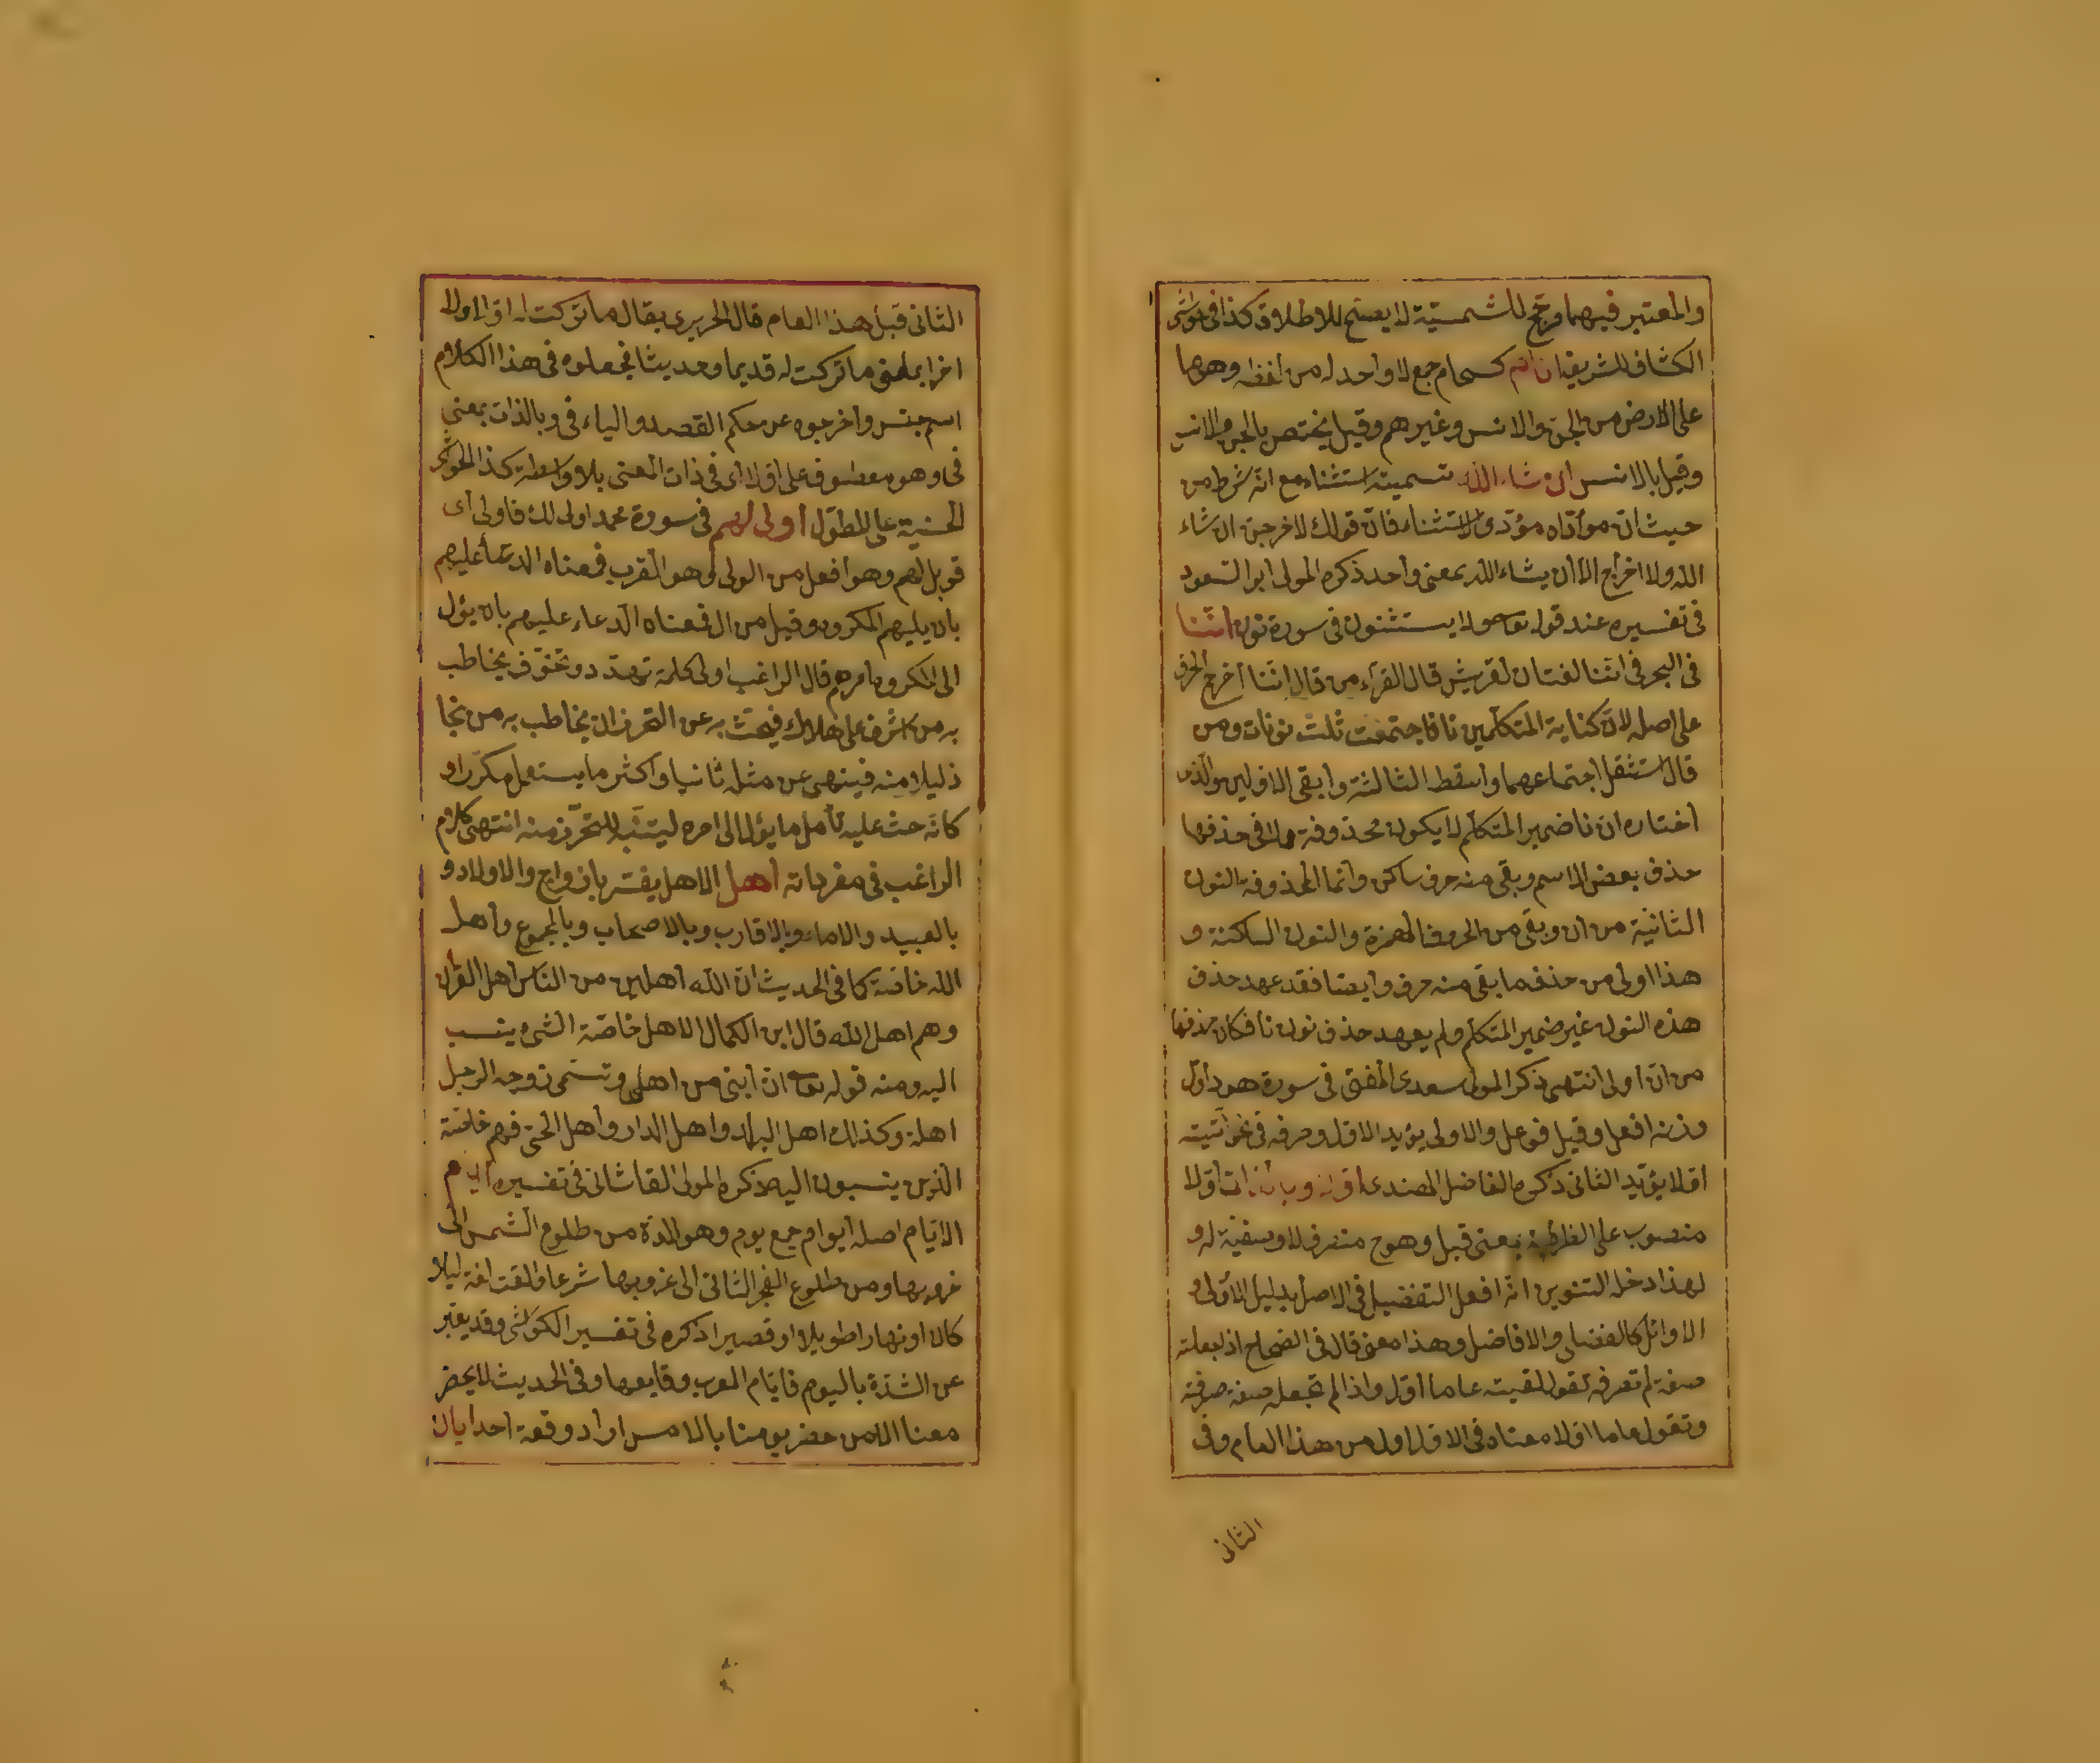 والمعتبر فيهما مرجح للشمسية لا يصح للاطلاق كذا فى حواشى
الكشاف للشريف انام كسحاب جمع لا واحد له من لفظه وهو ما
على الارض من الجن والانس وغيرهم وقيل يختص بالجن والانس
وقيل بالانس ان شاء الله تسميته استثناء مع انه شرط من
حيث ان مؤداه مؤدى الاستثناء فان قولك لاخرجن ان شاء
الله ولا اخرج الا ان يشاء الله بمعنى واحد ذكره المولى ابو السعود
فى تفسيره عند قوله تعالى ولا يستثنون فى سورة نون اننا
فى البحر فى اننا لغتان لقريش قال الفراء من قال اننا اخرج الحرف
على اصله لان كناية المتكلمين نا فاجتمعت ثلث نونات ومن
قال استثقل اجتماعهما واسقط الثالثة وابقى الاوليين والذى
اختاره ان نا ضمير المتكلم لا يكون محذوفة ولا فى حذفها
حذف بعض الاسم وبقى منه حرف ساكن وانما المحذوفة النون
الثانية من ان وبقى من الحروف الهمزة والنون الساكنة و
هذا اولى من حذف ما بقى منه حرف وايضا فقد عهد حذف
هذه النون غير ضمير المتكلم ولم يعهد حذف نون نا فكان حذفها
من ان اولى انتهى ذكر المولى سعدى المفتى فى سورة هود اول
وزنه افعل وقيل فوعل والاولى يؤيد الاول وحرفه فى نحو اتيته
اولا يؤيد الثانى ذكره الفاضل الهندى اولا وبالذات اولا
منصوب على الظرفية بمعنى قبل وهو ح منصرف لا وصفية له و
لهذا دخله التنوين انه افعل التفضيل فى الاصل بدليل الاولى و
الاوائل كالفضلى والافاضل وهذا معنى قال فى الصحاح اذا جعلته
صفة لم تصرفه تقول لقيته عاما اول واذا لم تجعله صفة صرفته
وتقول عاما اولا معناه فى الاول اول من هذا العام وفى
الثانى
الثانى قبل هذا العام قال الحريرى يقال ما تركت له اولا ولا
اخرا بمعنى ما تركت له قديما وحديثا فجعلوه فى هذا الكلام
اسم جنس واخرجوه عن حكم القصد والباء فى وبالذات بمعنى
فى وهو معطوف على اولا اى فى ذات المعنى بلا واسطة كذا الحواشى
الحسنية على المطول اولى لهم فى سورة محمد اولى لك فاولى اى
فويل لهم وهو افعل من الولى وهو القرب فمعناه الدعاء عليهم
بان يليهم المكروه وقيل من ال فمعناه الدعاء عليهم بان يؤل
الى المكروه امرهم قال الراغب اولى كلمة تهدد وتخوف يخاطب
به من اشرف على هلاك فيحث به عن التحرز ان يخاطب به من نجا
ذليلا منه فينهى عن مثله ثانيا واكثر ما يستعمل مكررا و
كانه حث عليه تأمل ما يؤل الى امره ليتنبه للتحرز منه انتهى كلام
الراغب فى مفرداته اهل الاهل يفسر بازواج والاولاد و
بالعبيد والاماء وبالاقارب وبالاصحاب وبالمجموع واهل
الله خاصة كما فى الحديث ان لله اهلين من الناس اهل القرآن
وهم اهل الله قال ابن الكمال الاهل خاصة الشىء ينسب
اليه ومنه قوله تعالى ان ابنى من اهلى وتسمى زوجه الرجل
اهله وكذلك اهل البلد واهل الدار واهل الحى فهم خاصته
الذين ينسبون اليه ذكره المولى القاشانى فى تفسيره ايام
الايام اصله ايوام جمع يوم وهو المدة من طلوع الشمس الى
غروبها ومن طلوع الفجر الثانى الى غروبها شرعا والوقت لغة ليلا
كان او نهارا طويلا او قصيرا ذكره فى تفسير الكواشى وقد يعبر
عن الشدة باليوم فايام العرب وقايعها وفى الحديث لا يحضر
معنا الا من حضر يومنا بالامس اراد وقعة احد ايان